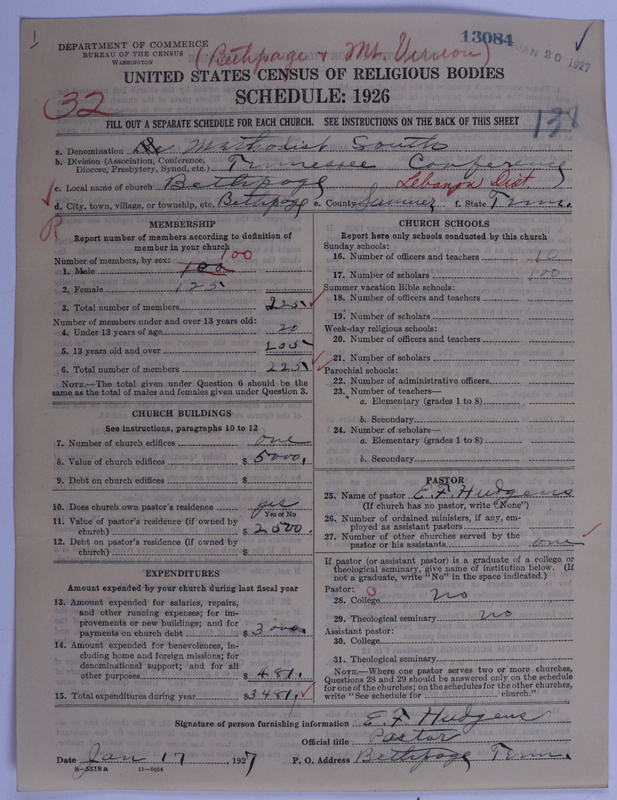 1
13084
JAN 20 1927
DEPARTMENT OF COMMERCE
BUREAU OF THE CENSUS
WASHINGTON
(Bethpage & Mt. Vernon)
UNITED STATES CENSUS OF RELIGIOUS BODIES
SCHEDULE: 1926
32
FILL OUT A SEPARATE SCHEDULE FOR EACH CHURCH. SEE INSTRUCTIONS ON THE BACK OF THIS SHEET
138
a. Denomination Methodist South
b. Division (Association, Conference, Diocese, Presbytery, Synod, etc.) Tennessee Conference
c. Local name of church Bethpage Lebanon Dist
d. City, town, village, or township, etc. Bethpage e. County Sumner f. State Tenn.
R
MEMBERSHIP
Report number of members according to definition of member in your church
Number of members, by sex: 100
1. Male 100
2. Female 125
3. Total number of members 225
Number of members under and over 13 years old:
4. Under 13 years of age 20
5. 13 years old and over 205
6. Total number of members 225
NOTE.—The total given under Question 6 should be the same as the total of males and females given under Question 3.
CHURCH BUILDINGS
See instructions, paragraphs 10 to 12
7. Number of church edifices one
8. Value of church edifices $ 5000.
9. Debt on church edifices $
10. Does church own pastor's residence yes
Yes or No
11. Value of pastor's residence (if owned by church) $ 2500.
12. Debt on pastor's residence (if owned by church) $
EXPENDITURES
Amount expended by your church during last fiscal year
13. Amount expended for salaries, repairs, and other running expenses; for improvements or new buildings; and for payments on church debt $ 3000.
14. Amount expended for benevolences, including home and foreign missions; for denominational support; and for all other purposes $ 481.
15. Total expenditures during year $ 3481.
CHURCH SCHOOLS
Report here only schools conducted by this church
Sunday schools:
16. Number of officers and teachers 10
17. Number of scholars 100
Summer vacation Bible schools:
18. Number of officers and teachers
19. Number of scholars
Week-day religious schools:
20. Number of officers and teachers
21. Number of scholars
Parochial schools:
22. Number of administrative officers
23. Number of teachers—
a. Elementary (grades 1 to 8)
b. Secondary
24. Number of scholars—
a. Elementary (grades 1 to 8)
b. Secondary
PASTOR
25. Name of pastor E. F. Hudgens
(If church has no pastor, write "None")
26. Number of ordained ministers, if any, employed as assistant pastors
27. Number of other churches served by the pastor or his assistants one
If pastor (or assistant pastor) is a graduate of a college or theological seminary, give name of institution below. (If not a graduate, write "No" in the space indicated.)
Pastor: O
28. College no
29. Theological seminary no
Assistant pastor:
30. College
31. Theological seminary
NOTE.—Where one pastor serves two or more churches, Questions 28 and 29 should be answered only on the schedule for one of the churches; on the schedules for the other churches, write "See schedule for church."
Signature of person furnishing information E. F. Hudgens
Official title Pastor
Date Jan 17, 1927 P. O. Address Bethpage Tenn.
8—5518a 11—9254